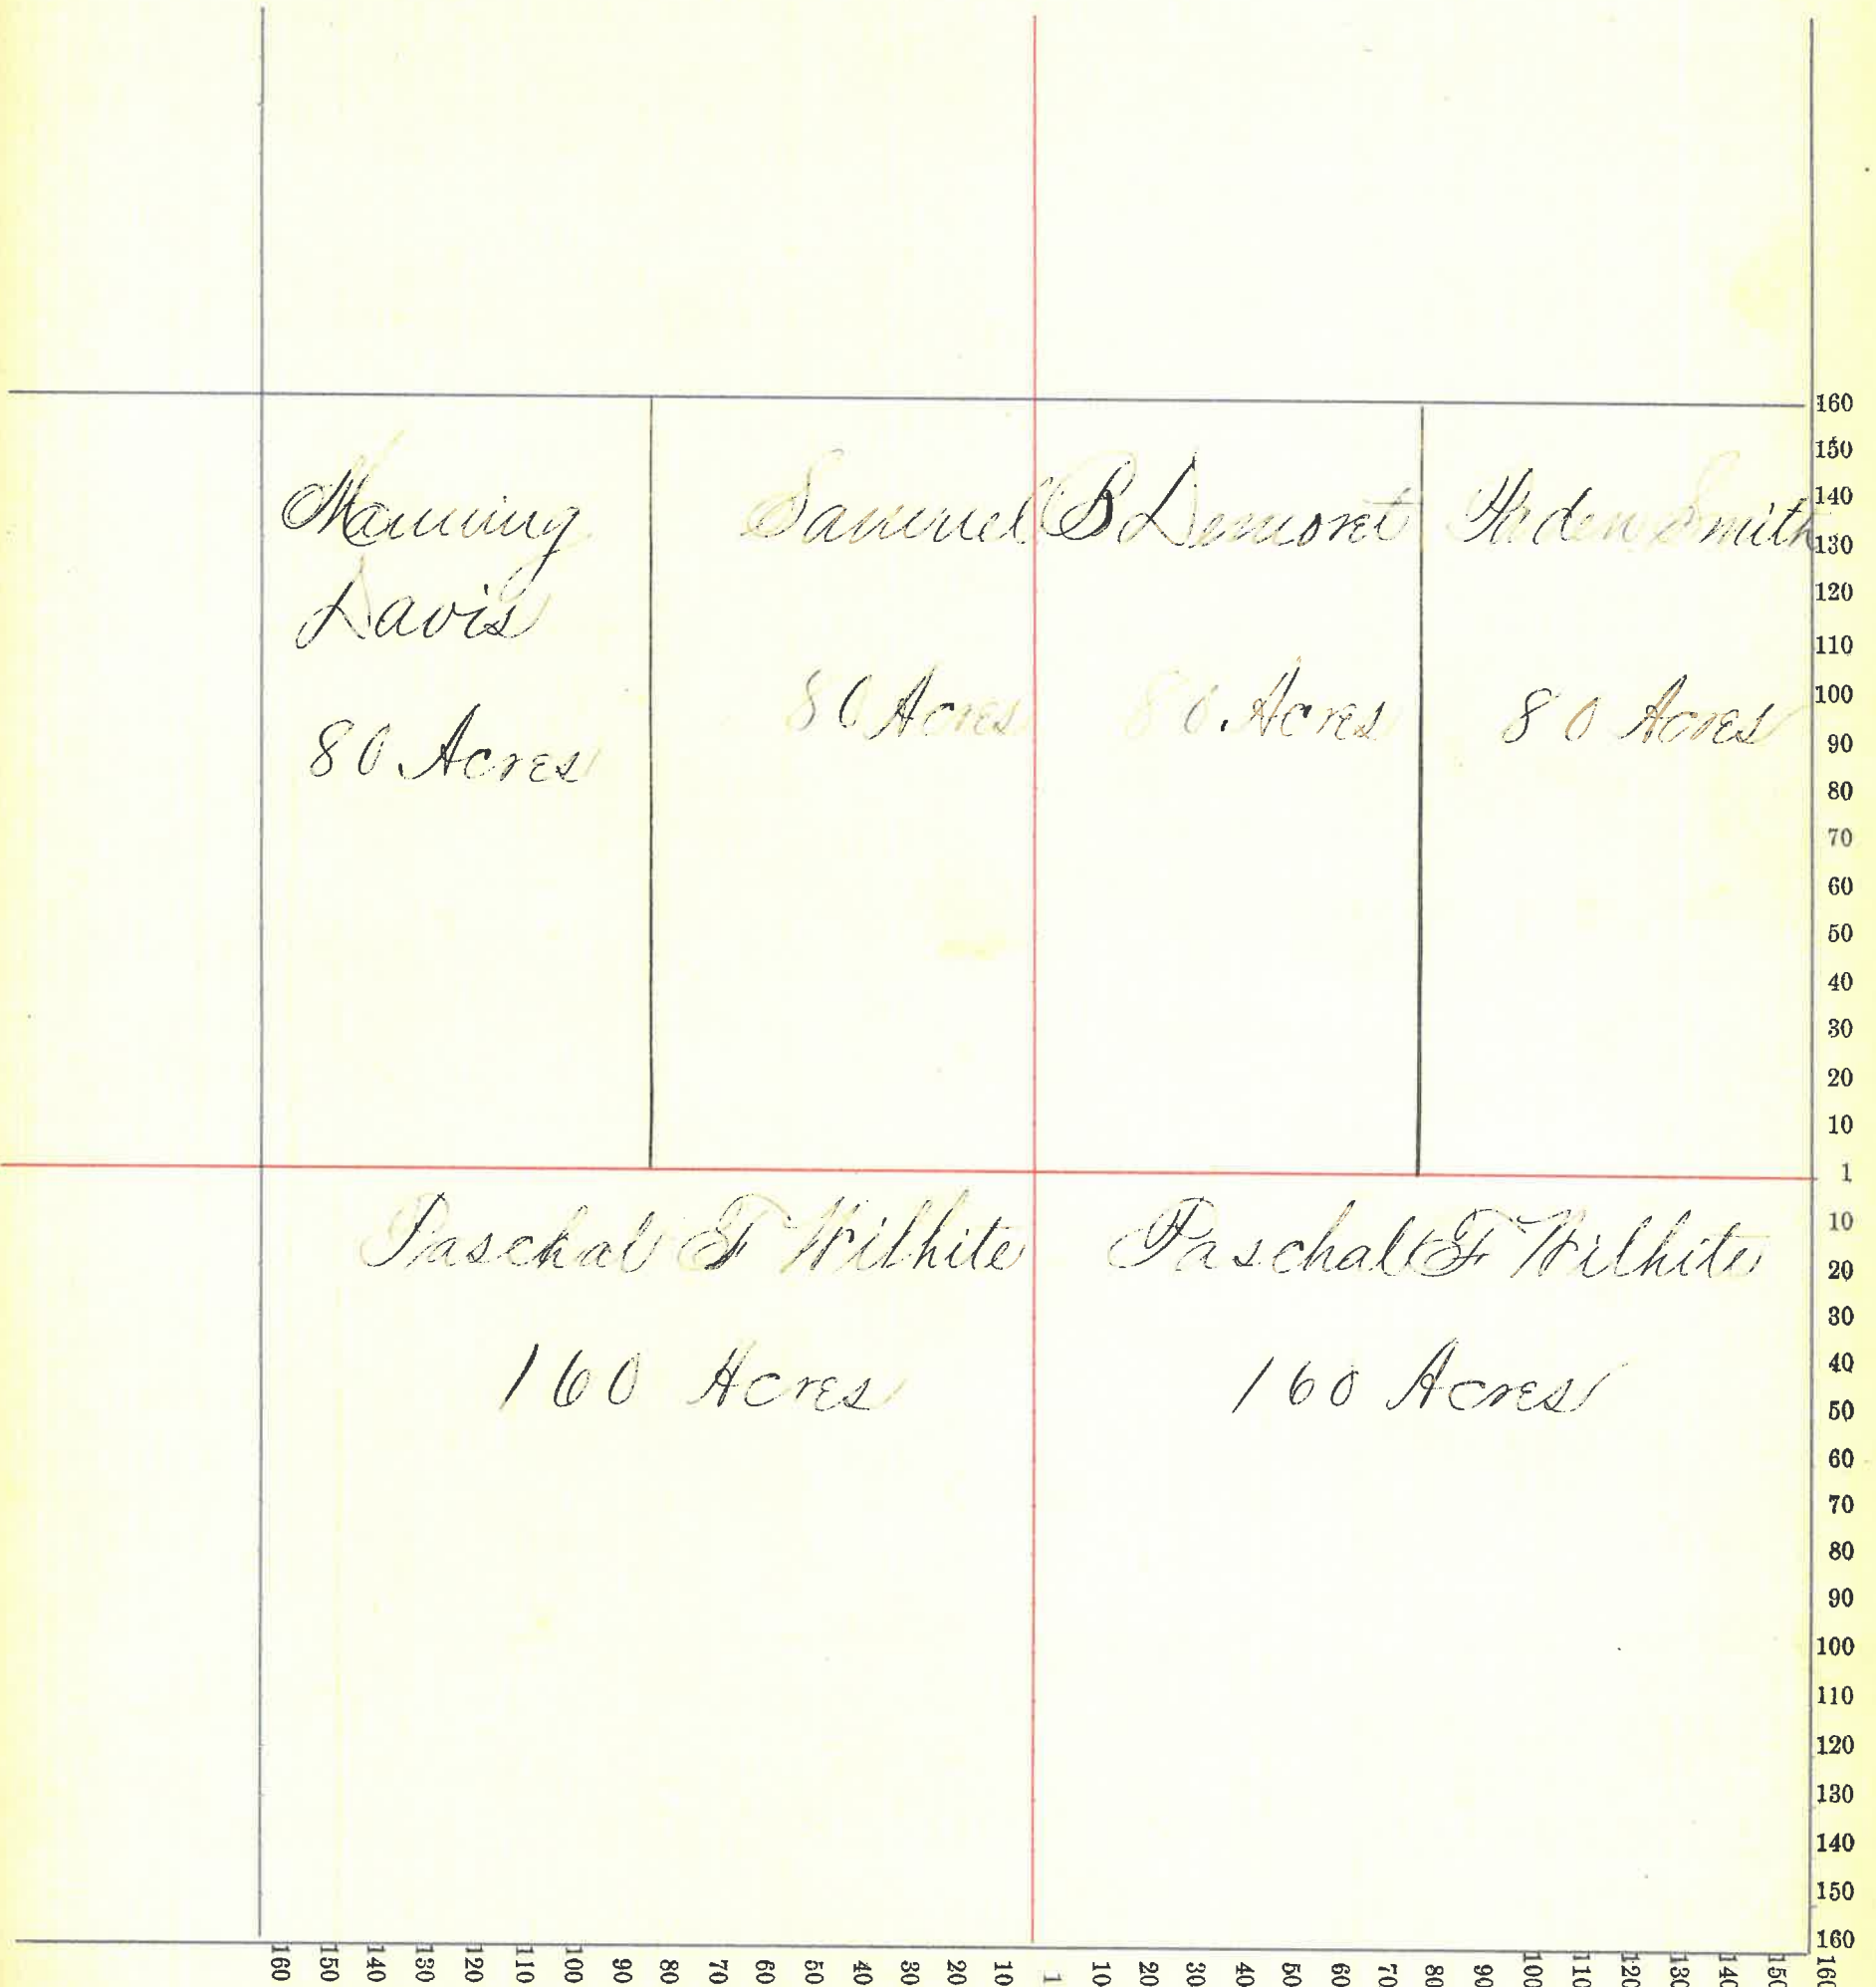 Manning
Davis
80 Acres
Samuel B Demoret
80 Acres
80 Acres
Smith
80 Acres
Paschal F Wilhite
160 Acres
Paschal F Wilhite
160 Acres
160
150
140
130
120
110
100
90
80
70
60
50
40
30
20
10
1
10
20
30
40
50
60
70
80
90
100
110
120
130
140
150
160
160 150 140 130 120 110 100 90 80 70 60 50 40 30 20 10 1 10 20 30 40 50 60 70 80 90 100 110 120 130 140 150 160